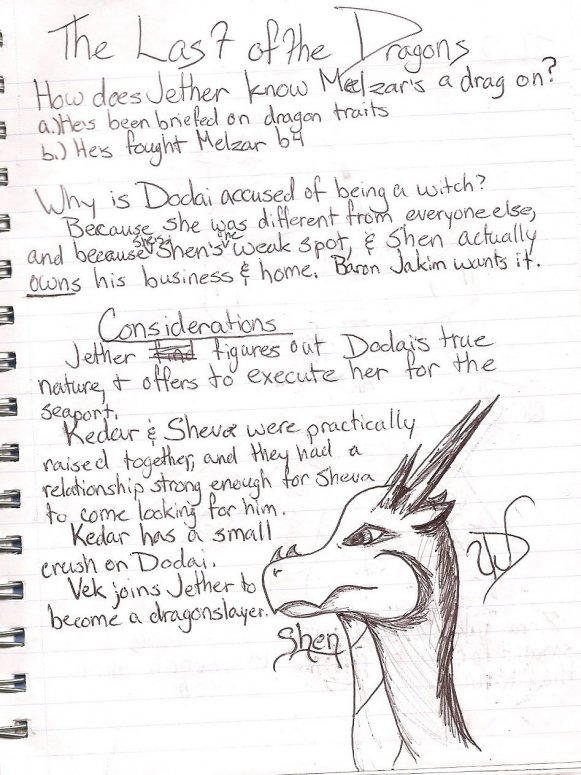 The Last of the Dragons
How does Jether know Melzar's a dragon?
a.) He's been briefed on dragon traits
b.) He's fought Melzar b4
Why is Dodai accused of being a witch?
Because she was different from everyone else,
and because she's Shen's one weak spot, & Shen actually
owns his business & home. Baron Jakim wants it.
Considerations
Jether find figures out Dodai's true
nature, & offers to execute her for the
seaport.
Kedar & Sheva were practically
raised together, and they had a
relationship strong enough for Sheva
to come looking for him.
Kedar has a small
crush on Dodai.
Vek joins Jether to
become a dragonslayer.
Shen